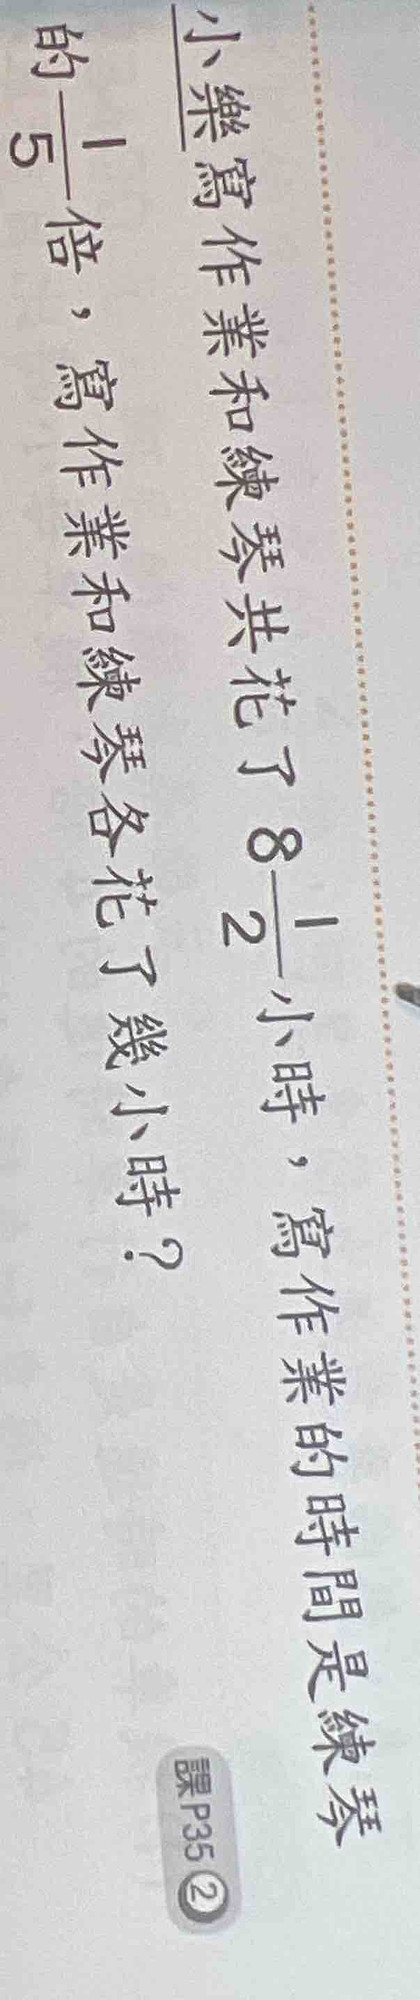 小樂寫作業和練琴共花了8 1/2小時，寫作業的時間是練琴
的1/5倍，寫作業和練琴各花了幾小時？
課P35②